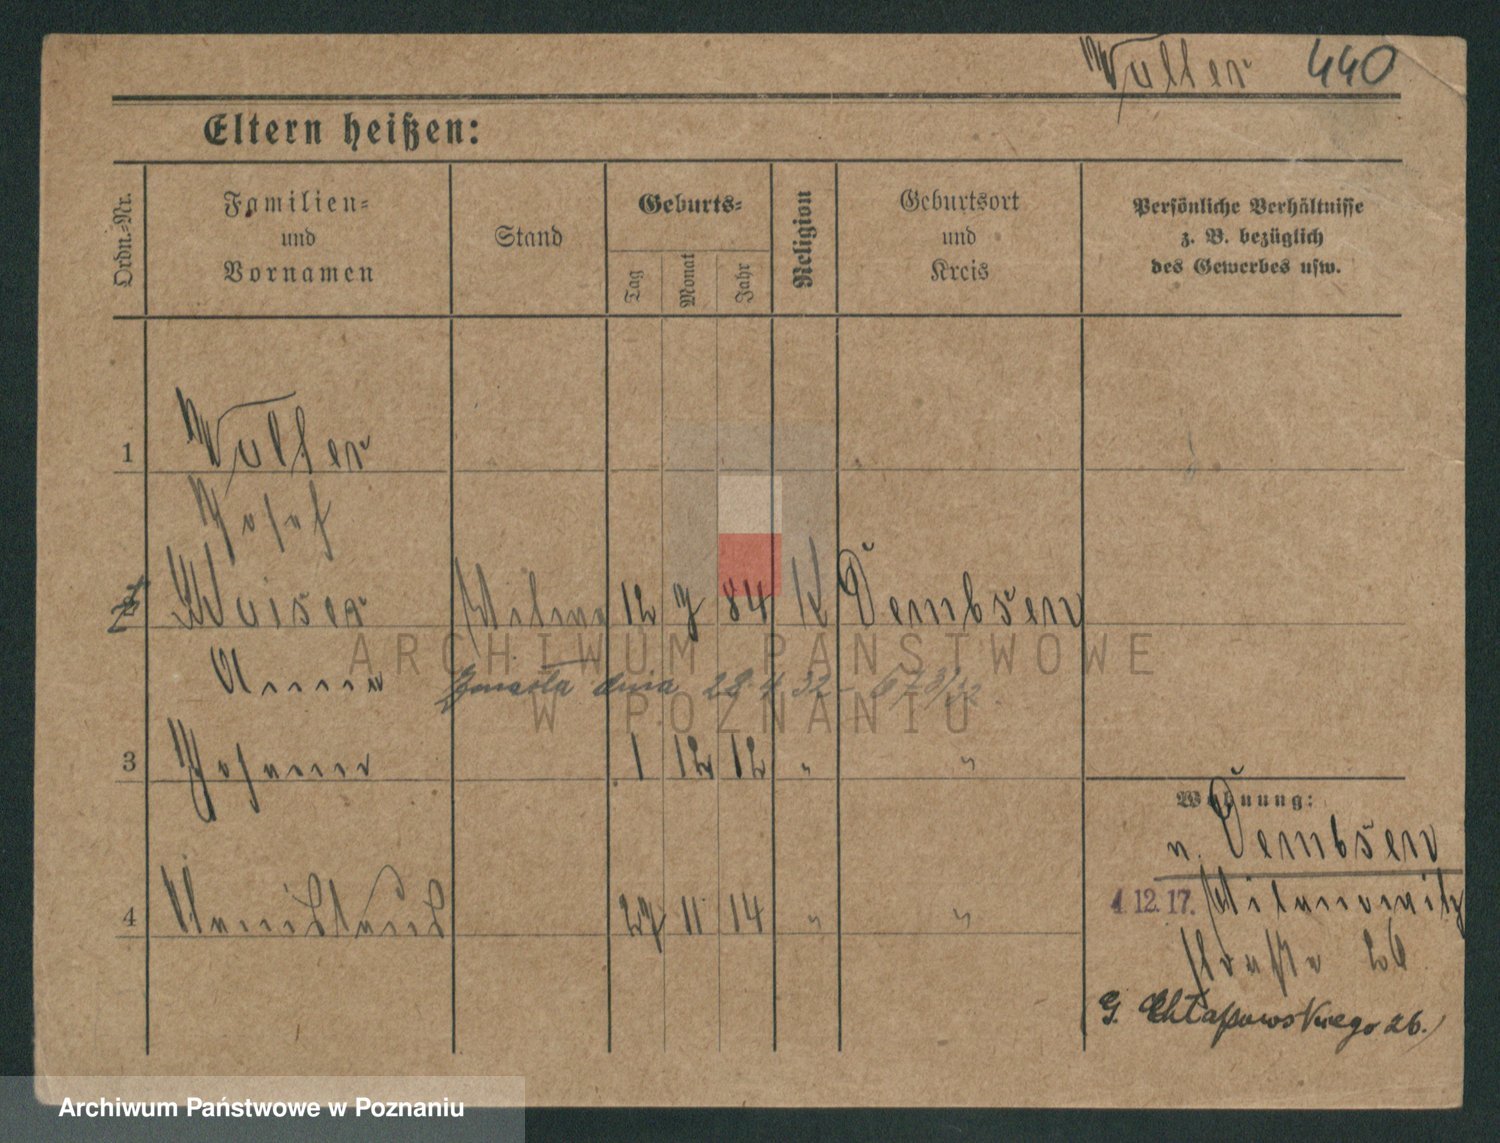 Wuller 440
Eltern heißen:
Ordn.-Nr.
Familien- und Vornamen
Stand
Geburts-
Tag
Monat
Jahr
Religion
Geburtsort und Kreis
Persönliche Verhältnisse z. B. bezüglich des Gewerbes usw.
1
Josef
12 84 K Dembsen
Anna
zmarła dnia 28.4.32 - 673/32
3 Johann 1 12 12 " "
4 27 11 14 " "
Wohnung:
n. Dembsen
4.12.17.
26
G. Chłapowskiego 26.
ARCHIWUM PAŃSTWOWE
W POZNANIU
Archiwum Państwowe w Poznaniu